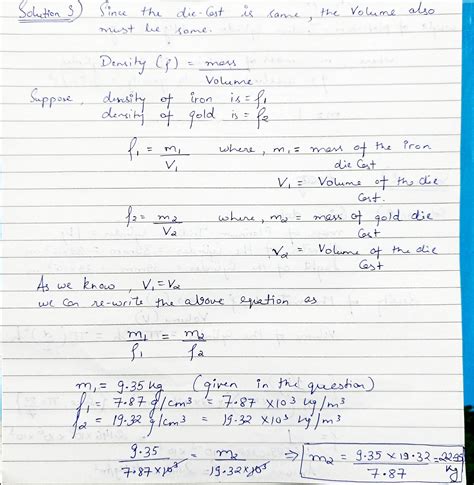 Solution 3) Since the die-Cost is same, the Volume also
must be same.
Density (ρ) = mass / Volume
Suppose, density of iron is = ρ1
density of gold is = ρ2
ρ1 = m1 / V1 where, m1 = mass of the iron
die Cost
V1 = Volume of the die
Cost.
ρ2 = m2 / V2 where, m2 = mass of gold die
Cost
V2 = Volume of the die
Cost
As we know, V1 = V2
we can re-write the above equation as
m1 / ρ1 = m2 / ρ2
m1 = 9.35 kg (given in the question)
ρ1 = 7.87 g/cm³ = 7.87 ×10³ kg/m³
ρ2 = 19.32 g/cm³ = 19.32 ×10³ kg/m³
9.35 / 7.87×10³ = m2 / 19.32×10³ ⇒ m2 = 9.35 × 19.32 / 7.87 =
kg